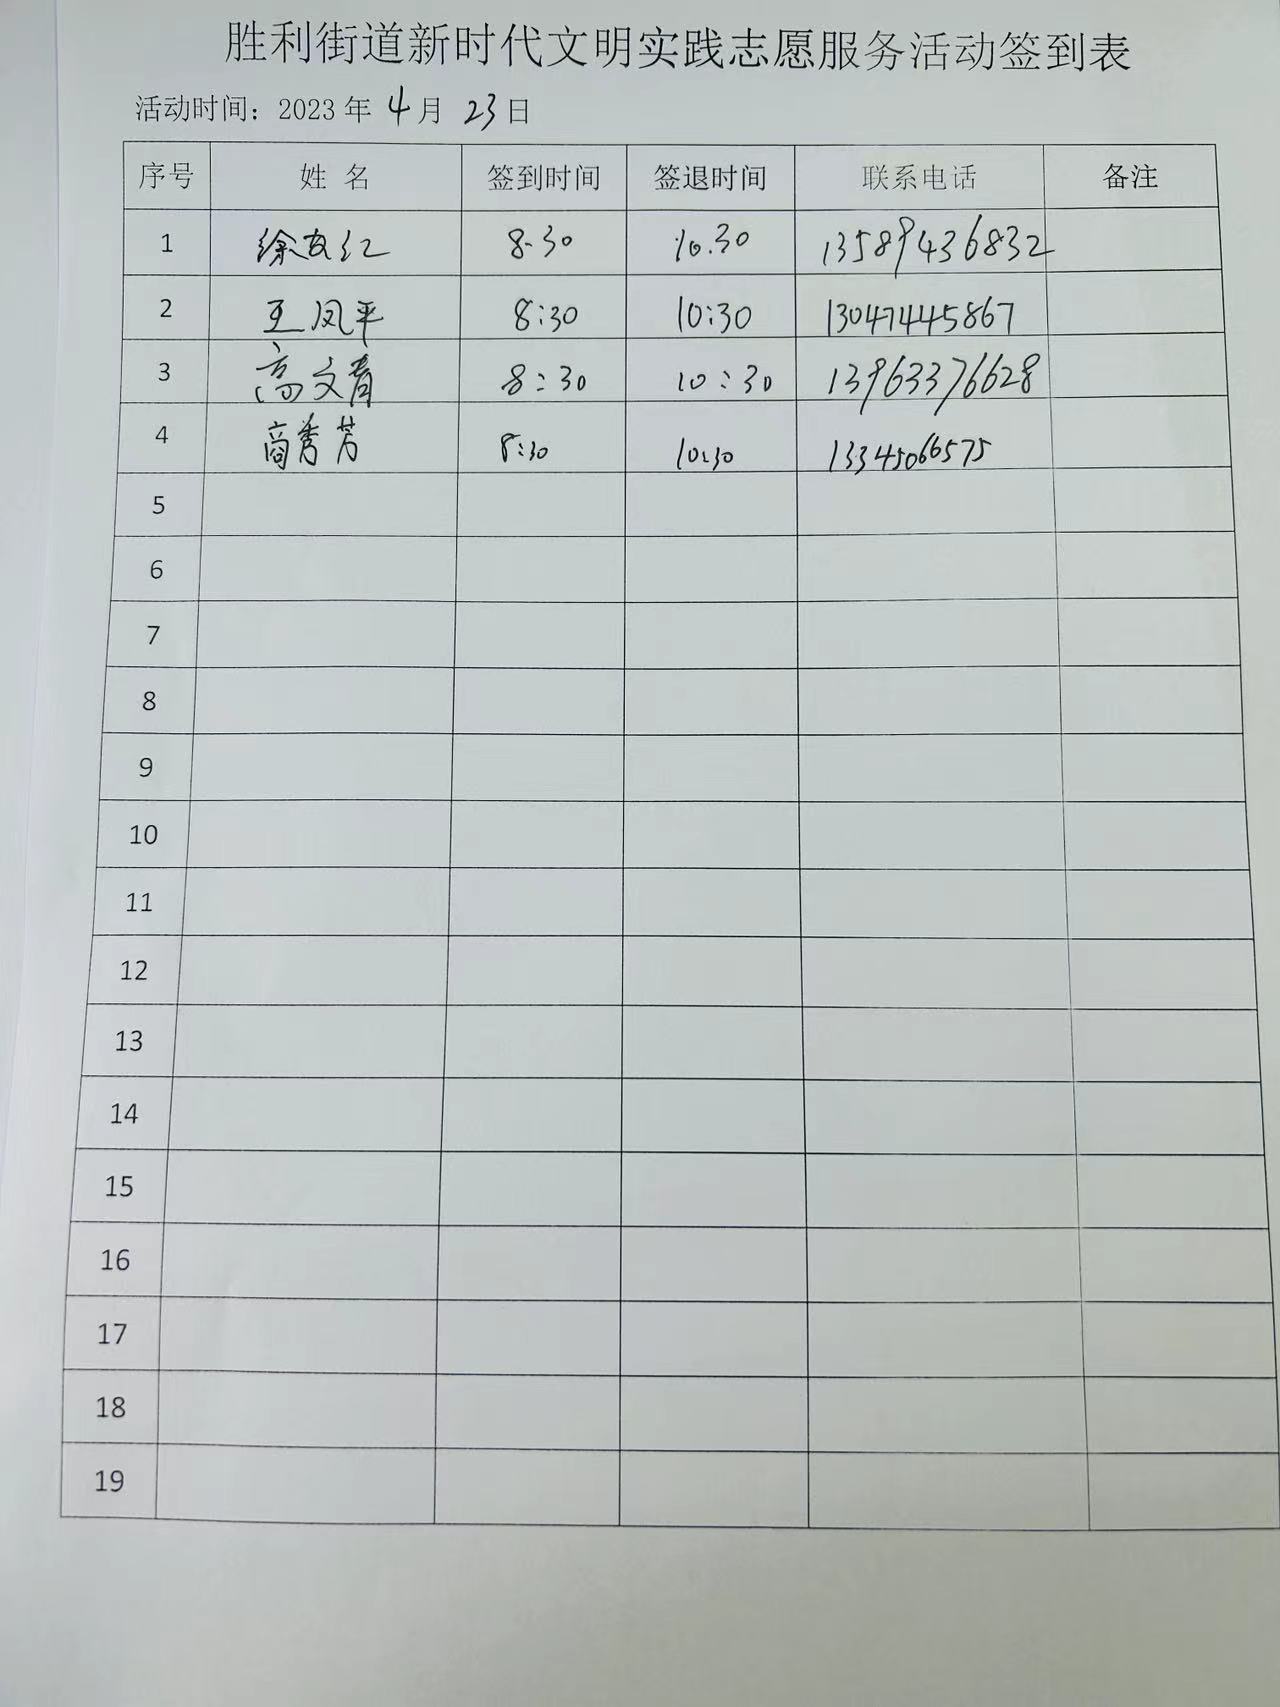 胜利街道新时代文明实践志愿服务活动签到表
活动时间：2023 年 4 月 23 日
序号 姓 名 签到时间 签退时间 联系电话 备注
1 徐友红 8.30 10.30 13589436832
2 王凤平 8:30 10:30 13047445867
3 高文青 8:30 10:30 13963376628
4 商秀芳 8:30 10:30 13345066575
5
6
7
8
9
10
11
12
13
14
15
16
17
18
19